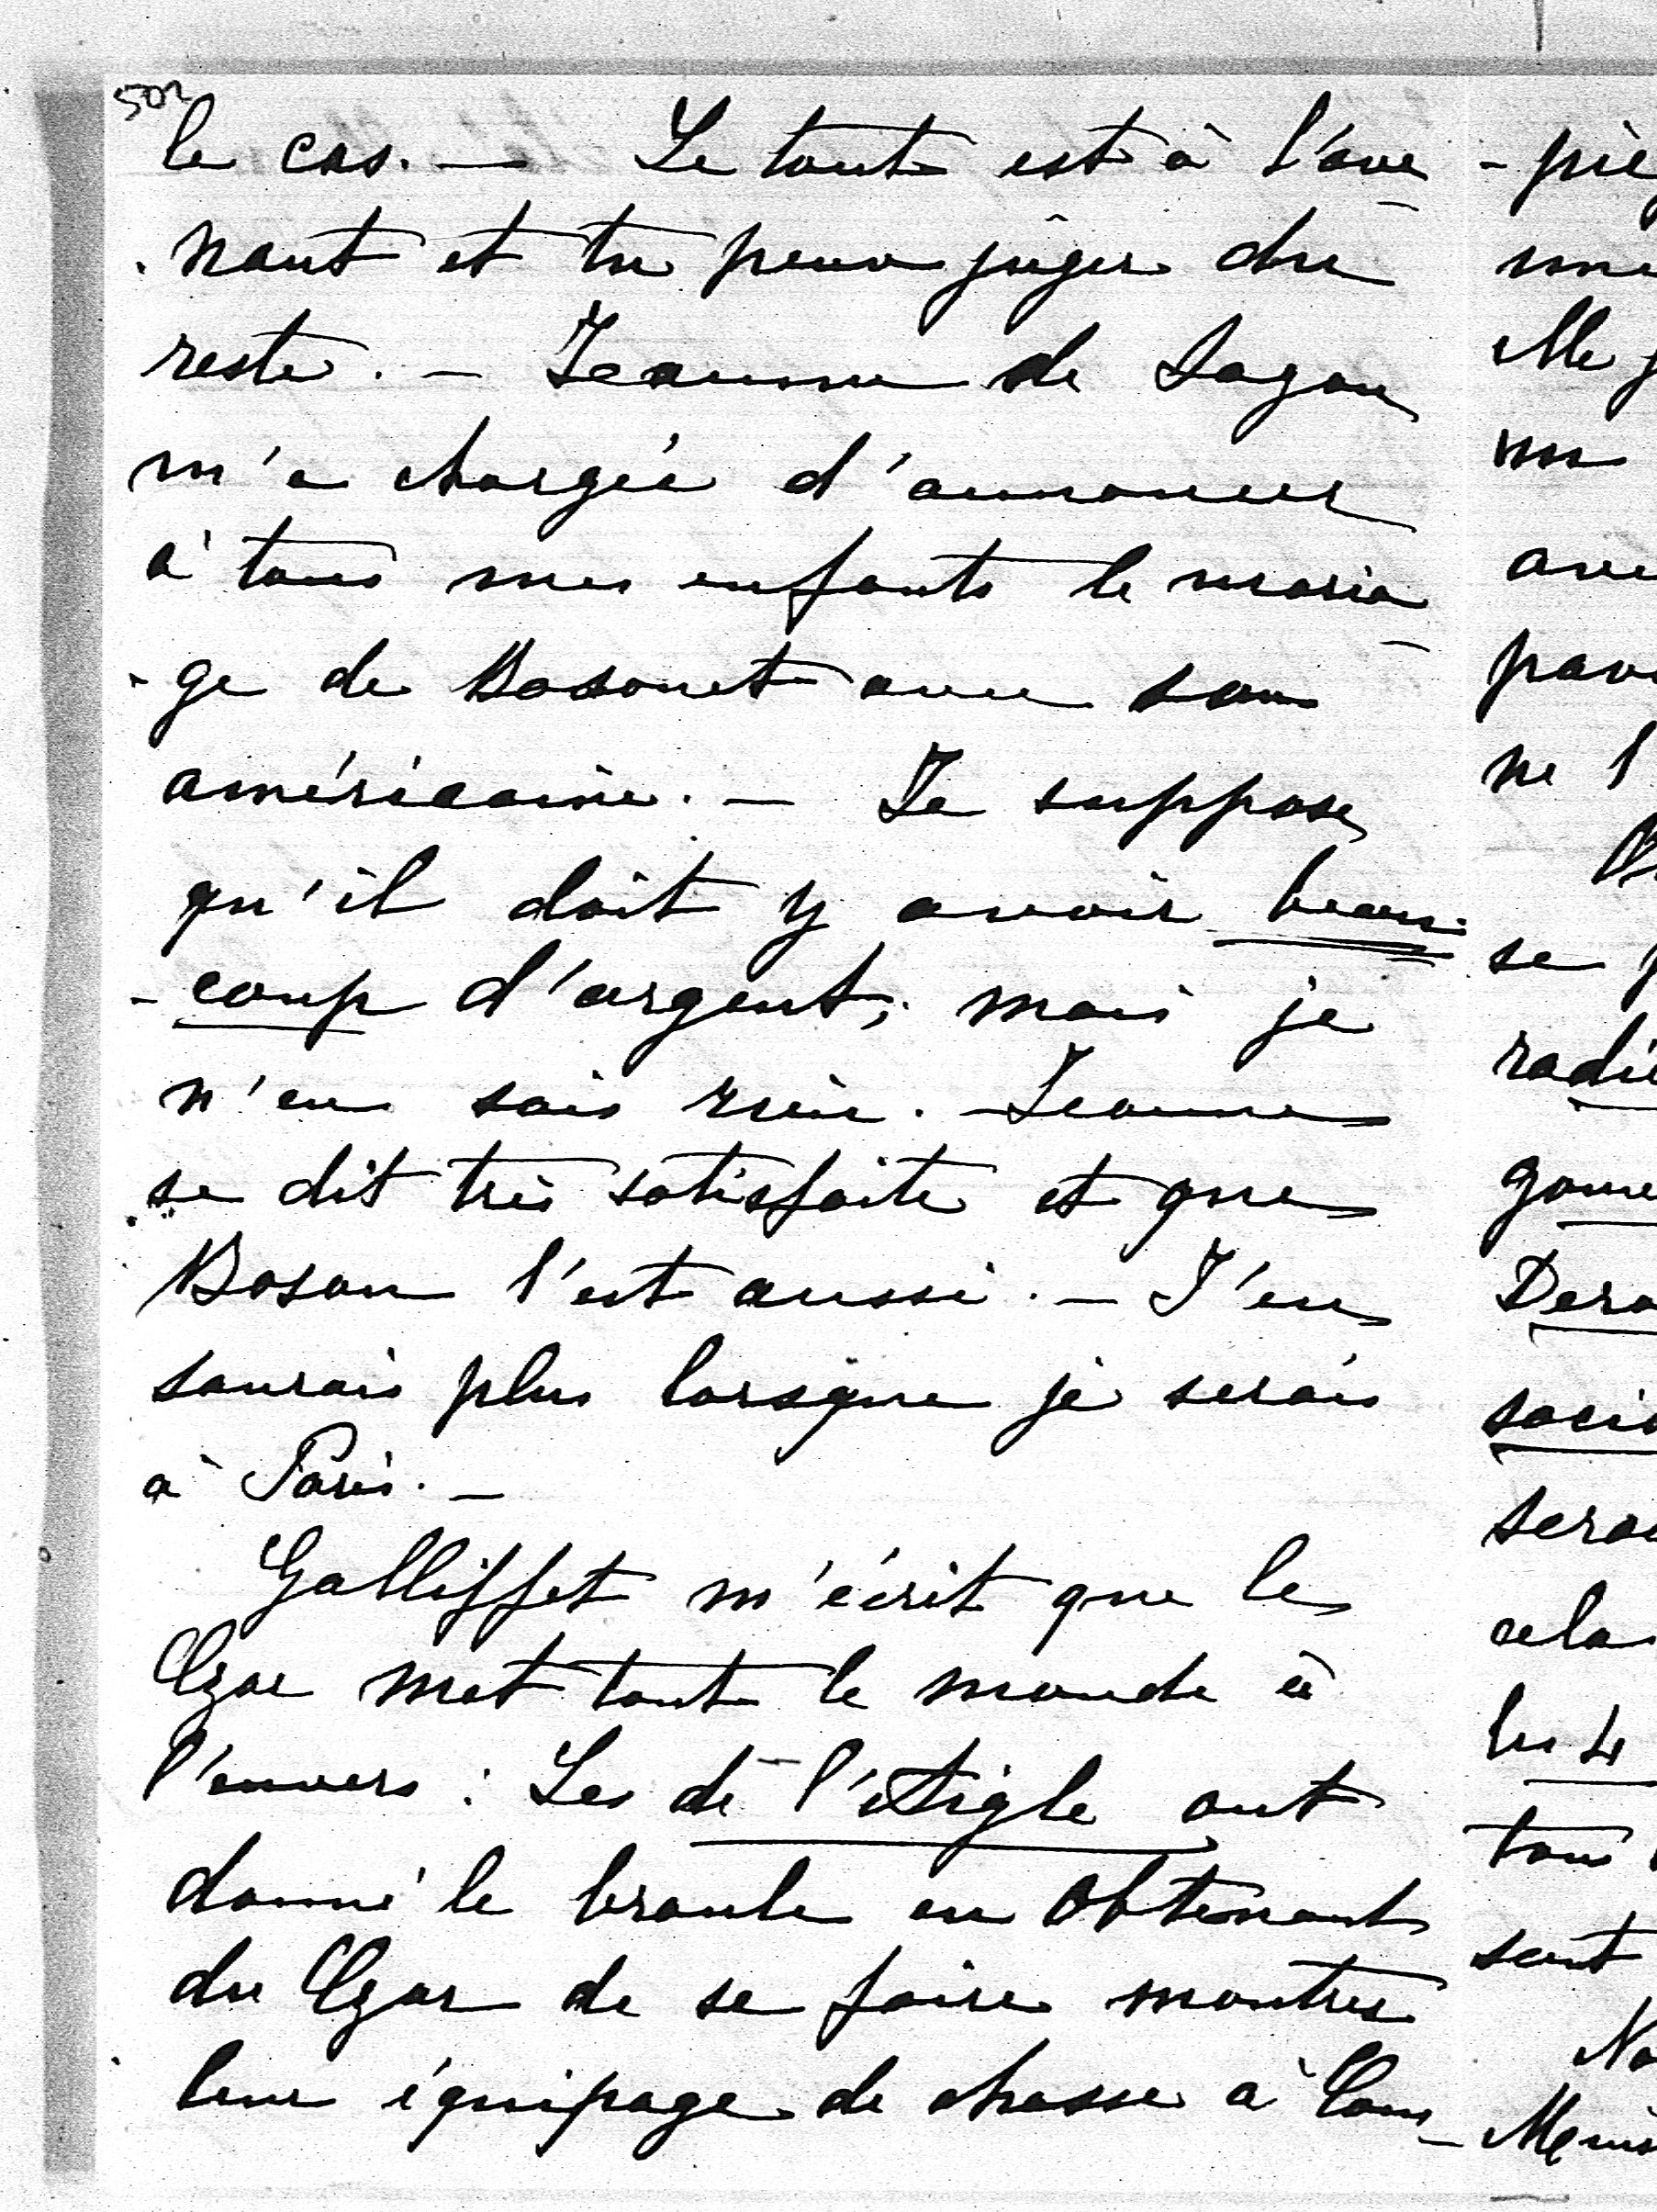 502
le cas. — Le tout est à l'ave
-nant et tu peux juger du
reste. — Jeanne de Sagan
m'a chargée d'annoncer
à tous mes enfants le maria
-ge de Bosonet avec son
américaine. — Je suppose
qu'il doit y avoir beau-
-coup d'argent; mais je
n'en sais rien. — Jeanne
se dit très satisfaite et que
Boson l'est aussi. — J'en
saurais plus lorsque je serais
à Paris. —
Galliffet m'écrit que le
Czar met tout le monde à
l'envers : Les de l'Aigle ont
donné le branle en obtenant
du Czar de se faire montrer
leur équipage de chasse à Com
- piè
une
Me
un
ave
pav
ne l
se
radi
gouve
Dero
socia
sera
cela
les 4
tous
sont
No
- Meni